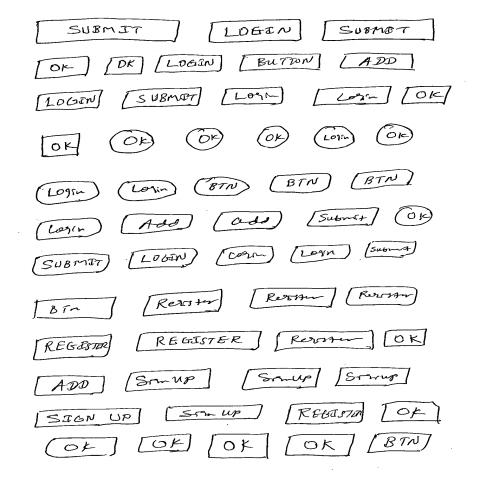 SUBMIT LOGIN SUBMIT
OK OK LOGIN BUTTON ADD
LOGIN SUBMIT Login Login OK
OK OK OK OK Login OK
Login Login BTN BTN BTN
Login Add add Submit OK
SUBMIT LOGIN Login Login Submit
BTn Register Register Register
REGISTER REGISTER Register OK
ADD SIGN UP SIGN UP SIGN UP
SIGN UP SIGN UP REGISTER OK
OK OK OK OK BTN